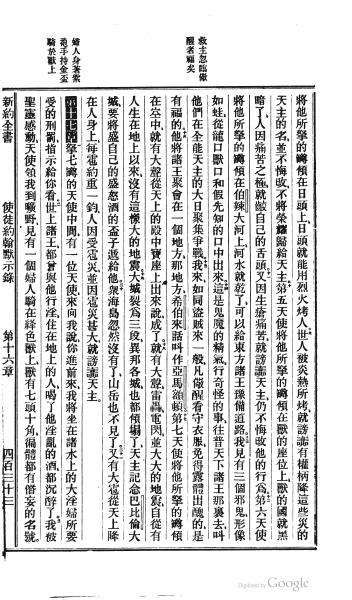 救主忽臨儆
醒者福矣
將他所擎的傾在日頭上日頭就能用烈火烤人世人被炎熱所烤就謗讟有權柄降這些災的
天主的名並不悔改不將榮耀歸給天主第五天使將他所擎的傾在獸的座位上獸的國就黑
暗了人因痛苦之極就齩自己的舌頭又因生瘡痛苦就謗讟天主仍不悔改他的行爲第六天使
將他所擎的傾在伯辣大河上河水就乾了可以給東方諸王豫備道路我見有三個邪鬼形像
如蛙從龍口獸口和假先知的口中出來這是鬼魔的精氣行奇怪的事往普天下諸王那裏去叫
他們在全能天主的大日聚集爭戰我來如同盜賊來一般凡儆醒看守衣服免得露體出醜的是
有福的他將諸王聚會在一個地方那地方希伯來話叫作亞馬頓第七天使將他所擎的傾
在空中就有大聲從天上的殿中寶座上出來說成了就有大聲雷轟電閃並大大的地震自從有
人生在地上以來沒有這樣大的地震大城裂爲三段異邦各城也都傾塌了天主記念巴比倫大
城要將盛自己的盛怒酒的盃子遞給他衆海島忽然沒有了山岳也不見了又有大雹從天上降
在人身上每雹約重一鈞人因受雹災並因雹災甚大就謗讟天主
婦人身著紫
袍手持金盃
騎於獸上
第十七章擎七的天使中間有一位天使來向我說你進前來我將坐在諸水上的大淫婦所要
受的刑罰指示給你看世上諸王都曾與他行淫住在地上的人喝了他淫亂的酒都沉醉了我被
聖靈感動天使領我到曠野見有一個婦人騎在絳色獸上獸有七頭十角徧體都有僭妄的名號
新約全書 使徒約翰默示錄 第十六章 四百三十三
Digitized by Google